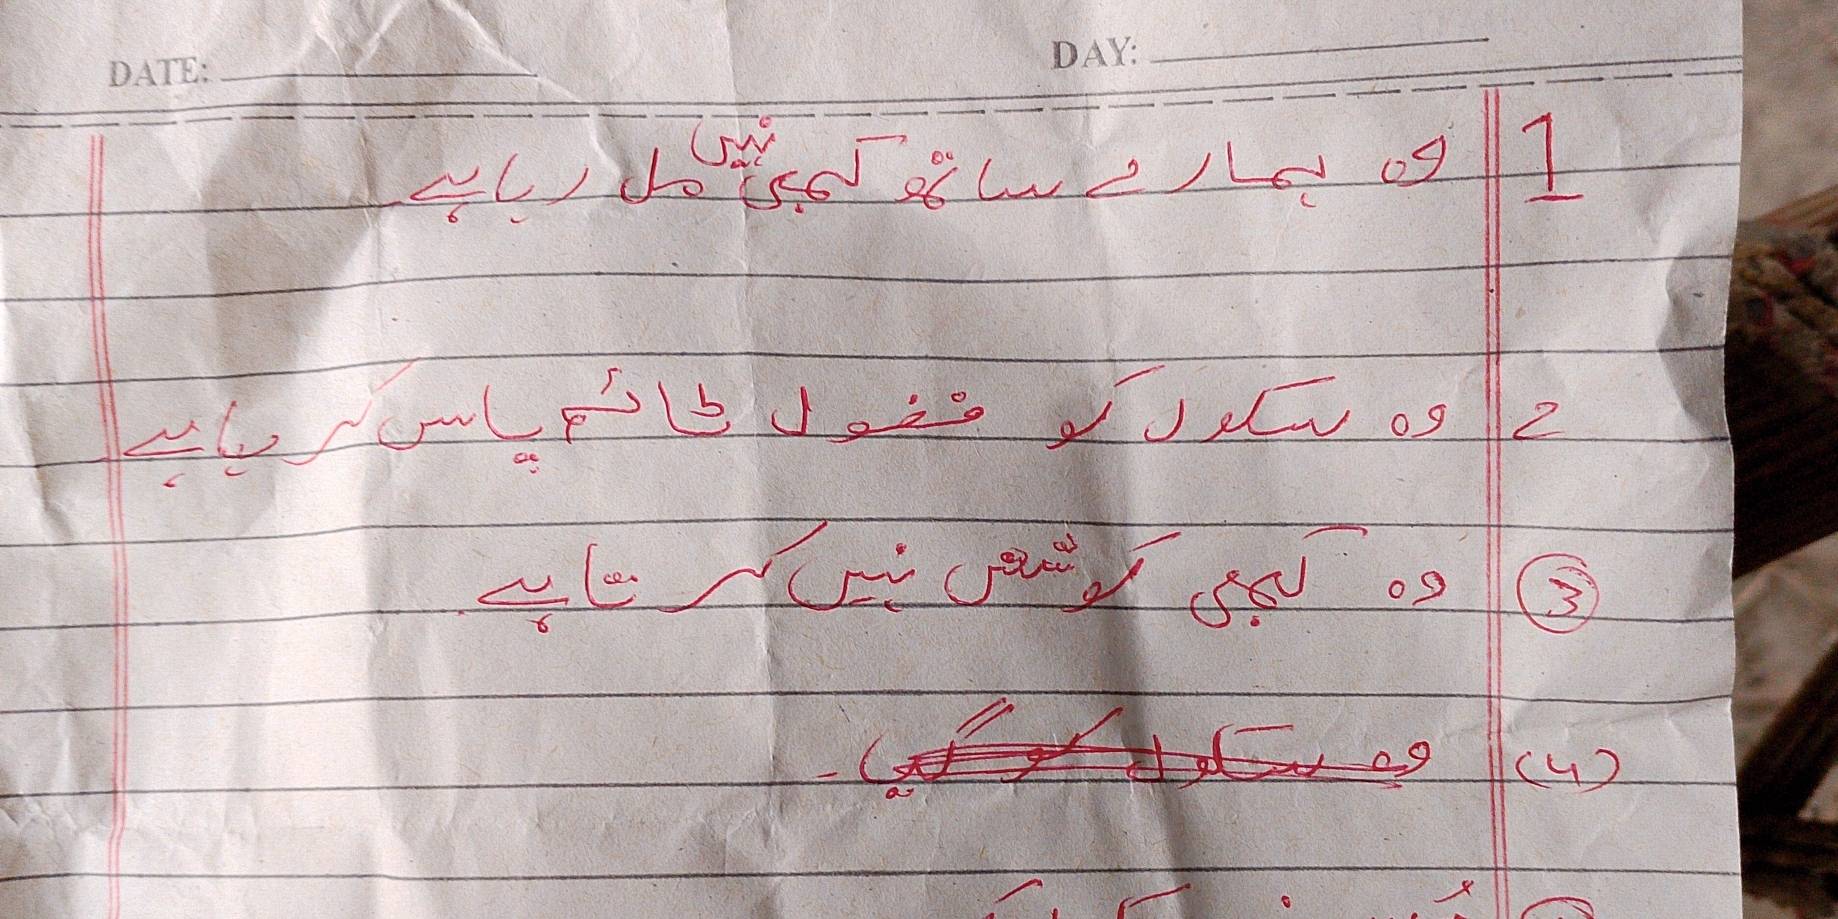 DATE: DAY:
1 وہ ہمارے ساتھ کبھی نہیں مل رہا ہے
2 وہ سکول کو فضول ٹائم پاس کر رہا ہے
3 وہ کبھی کوشش نہیں کرتا ہے
(4) وہ سکول کو گیی۔